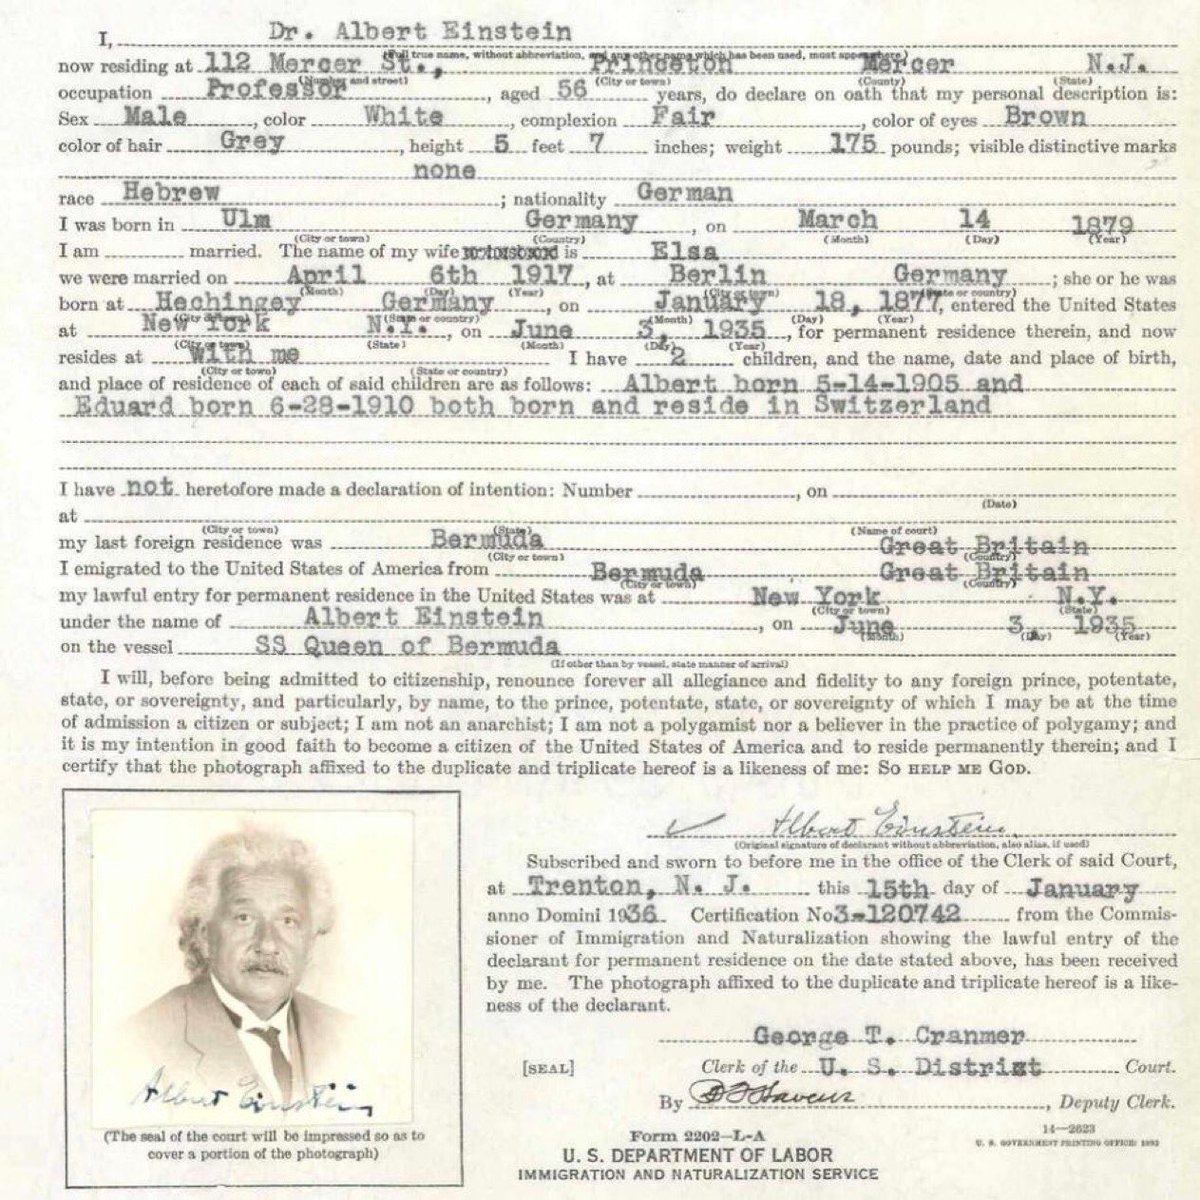 I, Dr. Albert Einstein
(Full true name, without abbreviation, and any other name which has been used, must appear here.)
now residing at 112 Mercer St., Princeton Mercer N.J.
(Number and street) (City or town) (County) (State)
occupation Professor, aged 56 years, do declare on oath that my personal description is:
Sex Male, color White, complexion Fair, color of eyes Brown
color of hair Grey, height 5 feet 7 inches; weight 175 pounds; visible distinctive marks
none
race Hebrew; nationality German
I was born in Ulm Germany, on March 14 1879
(City or town) (Country) (Month) (Day) (Year)
I am married. The name of my wife is Elsa
we were married on April 6th 1917, at Berlin Germany; she or he was
(Month) (Day) (Year) (City or town) (State or country)
born at Hechingey Germany, on January 18, 1877, entered the United States
(City or town) (State or country) (Month) (Day) (Year)
at New York N.Y., on June 3, 1935, for permanent residence therein, and now
(City or town) (State) (Month) (Day) (Year)
resides at with me I have 2 children, and the name, date and place of birth,
(City or town) (State or country)
and place of residence of each of said children are as follows: Albert born 5-14-1905 and
Eduard born 6-28-1910 both born and reside in Switzerland
I have not heretofore made a declaration of intention: Number, on
(Date)
at
(City or town) (State) (Name of court)
my last foreign residence was Bermuda Great Britain
(City or town) (Country)
I emigrated to the United States of America from Bermuda Great Britain
(City or town) (Country)
my lawful entry for permanent residence in the United States was at New York N.Y.
(City or town) (State)
under the name of Albert Einstein, on June 3, 1935
(Month) (Day) (Year)
on the vessel SS Queen of Bermuda
(If other than by vessel, state manner of arrival)
I will, before being admitted to citizenship, renounce forever all allegiance and fidelity to any foreign prince, potentate,
state, or sovereignty, and particularly, by name, to the prince, potentate, state, or sovereignty of which I may be at the time
of admission a citizen or subject; I am not an anarchist; I am not a polygamist nor a believer in the practice of polygamy; and
it is my intention in good faith to become a citizen of the United States of America and to reside permanently therein; and I
certify that the photograph affixed to the duplicate and triplicate hereof is a likeness of me: SO HELP ME GOD.
Albert Einstein
(Original signature of declarant without abbreviation, also alias, if used)
Subscribed and sworn to before me in the office of the Clerk of said Court,
at Trenton, N. J. this 15th day of January
anno Domini 1936. Certification No 3-120742 from the Commis-
sioner of Immigration and Naturalization showing the lawful entry of the
declarant for permanent residence on the date stated above, has been received
by me. The photograph affixed to the duplicate and triplicate hereof is a like-
ness of the declarant.
George T. Cranmer
[SEAL] Clerk of the U. S. District Court.
By, Deputy Clerk.
Albert Einstein
(The seal of the court will be impressed so as to
cover a portion of the photograph)
Form 2202-L-A
U. S. DEPARTMENT OF LABOR
IMMIGRATION AND NATURALIZATION SERVICE
14—2623
U. S. GOVERNMENT PRINTING OFFICE: